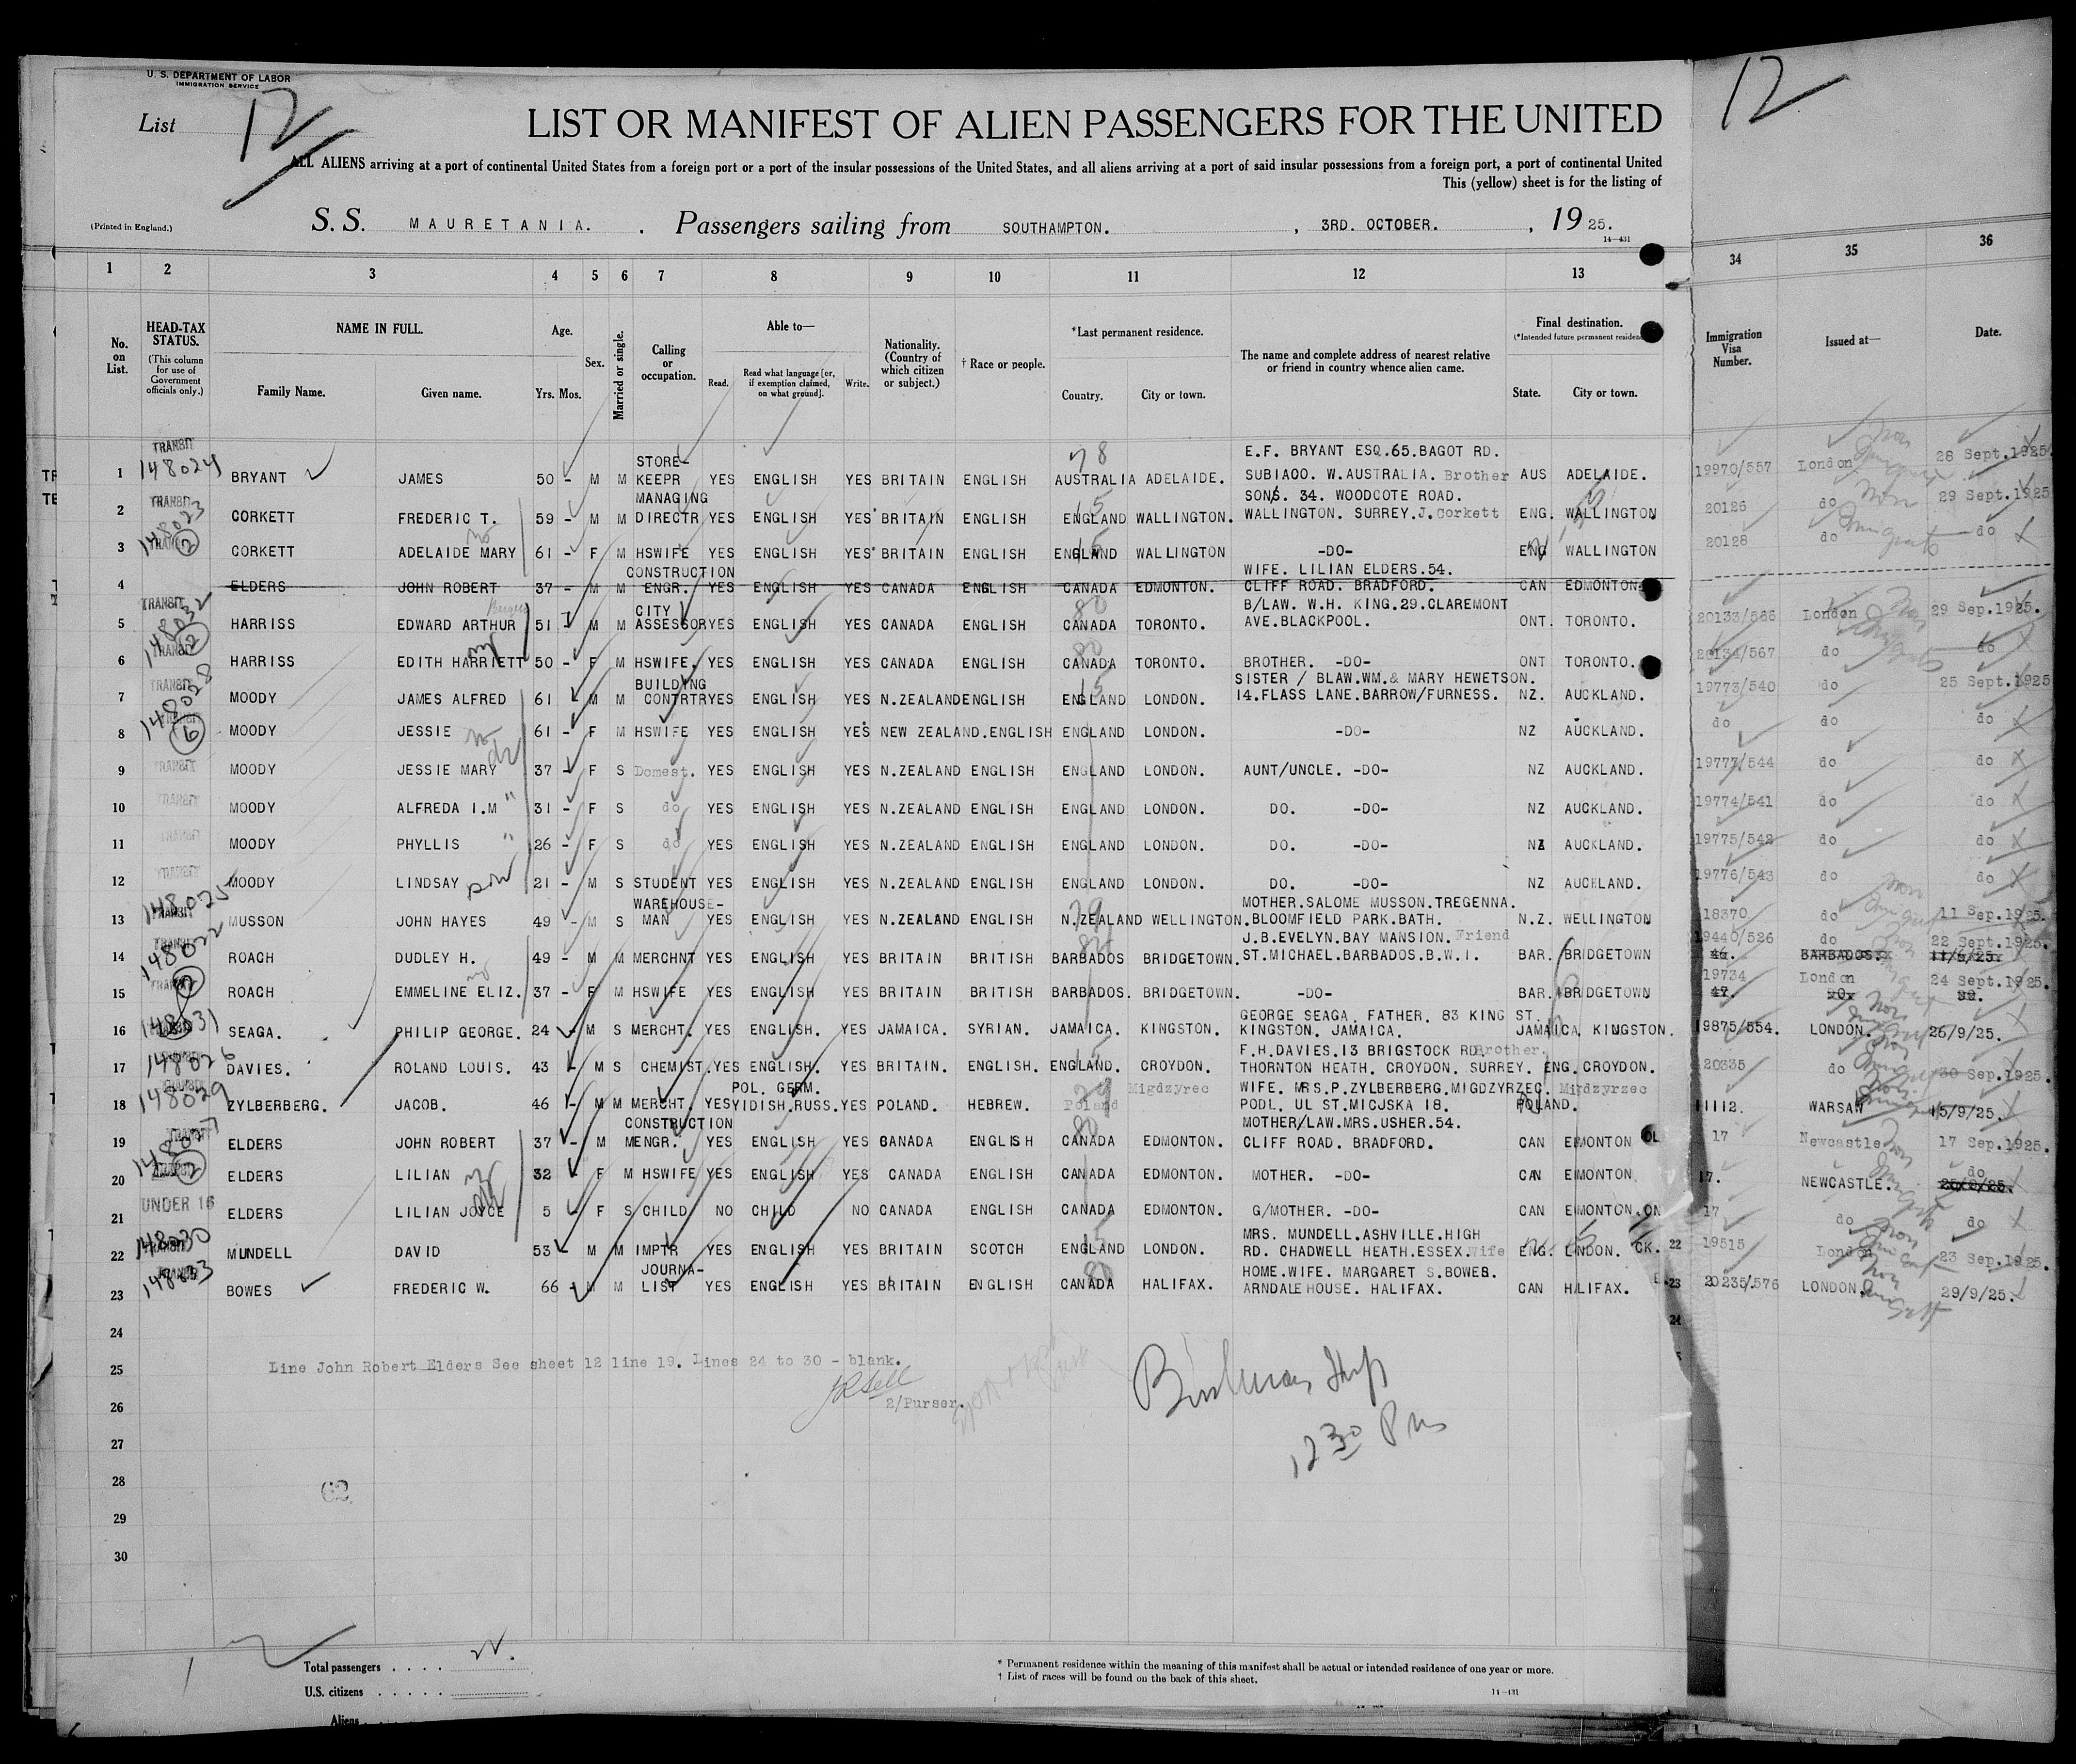 U. S. DEPARTMENT OF LABOR
IMMIGRATION SERVICE
List 12
12
LIST OR MANIFEST OF ALIEN PASSENGERS FOR THE UNITED
ALL ALIENS arriving at a port of continental United States from a foreign port or a port of the insular possessions of the United States, and all aliens arriving at a port of said insular possessions from a foreign port, a port of continental United
This (yellow) sheet is for the listing of
(Printed in England.) S. S. MAURETANIA. . Passengers sailing from SOUTHAMPTON. , 3RD. OCTOBER. , 19 25.
14—431
1 2 3 4 5 6 7 8 9 10 11 12 13 34 35 36
No. on List. HEAD-TAX STATUS. (This column for use of Government officials only.) NAME IN FULL. Family Name. Given name. Age. Yrs. Mos. Sex. Married or single. Calling or occupation. Able to— Read. Read what language [or, if exemption claimed, on what ground]. Write. Nationality. (Country of which citizen or subject.) † Race or people. *Last permanent residence. Country. City or town. The name and complete address of nearest relative or friend in country whence alien came. Final destination. (*Intended future permanent residence State. City or town. Immigration Visa Number. Issued at— Date.
1 TRANSIT 148024 BRYANT JAMES 50 - M M STORE-KEEPR YES ENGLISH YES BRITAIN ENGLISH 78 AUSTRALIA ADELAIDE. E.F. BRYANT ESQ.65.BAGOT RD. SUBIACO. W.AUSTRALIA. Brother AUS ADELAIDE. 19970/557 London 28 Sept.1925
2 TRANSIT 148023 CORKETT FREDERIC T. 59 - M M MANAGING DIRECTR YES ENGLISH YES BRITAIN ENGLISH 15 ENGLAND WALLINGTON. SONS. 34. WOODCOTE ROAD. WALLINGTON. SURREY.J.Corkett ENG. WALLINGTON 20126 do 29 Sept.1925
3 2 CORKETT ADELAIDE MARY 61 - F M HSWIFE YES ENGLISH YES BRITAIN ENGLISH 15 ENGLAND WALLINGTON -DO- ENG WALLINGTON 20128 do do
4 ELDERS JOHN ROBERT 37 - M M CONSTRUCTION ENGR. YES ENGLISH YES CANADA ENGLISH CANADA EDMONTON. WIFE. LILIAN ELDERS.54. CLIFF ROAD. BRADFORD. CAN EDMONTON
5 TRANSIT 148032 HARRISS EDWARD ARTHUR 51 - M M CITY ASSESSOR YES ENGLISH YES CANADA ENGLISH 80 CANADA TORONTO. B/LAW. W.H. KING.29.CLAREMONT AVE.BLACKPOOL. ONT. TORONTO. 20133/566 London 29 Sep.1925.
6 2 HARRISS EDITH HARRIETT 50 - F M HSWIFE. YES ENGLISH YES CANADA ENGLISH 80 CANADA TORONTO. BROTHER. -DO- ONT TORONTO. 20134/567 do do
7 TRANSIT 148028 MOODY JAMES ALFRED 61 - M M BUILDING CONTRTR YES ENGLISH YES N.ZEALAND ENGLISH 15 ENGLAND LONDON. SISTER / BLAW.WM.& MARY HEWETSON. 14.FLASS LANE.BARROW/FURNESS. NZ. AUCKLAND. 19773/540 do 25 Sept.1925
8 6 MOODY JESSIE 61 - F M HSWIFE YES ENGLISH YES NEW ZEALAND.ENGLISH ENGLAND LONDON. -DO- NZ AUCKLAND. do do do
9 TRANSIT MOODY JESSIE MARY 37 - F S Domest. YES ENGLISH YES N.ZEALAND ENGLISH ENGLAND LONDON. AUNT/UNCLE. -DO- NZ AUCKLAND. 19777/544 do do
10 TRANSIT MOODY ALFREDA I.M " 31 - F S do YES ENGLISH YES N.ZEALAND ENGLISH ENGLAND LONDON. DO. -DO- NZ AUCKLAND. 19774/541 do do
11 TRANSIT MOODY PHYLLIS " 26 - F S do YES ENGLISH YES N.ZEALAND ENGLISH ENGLAND LONDON. DO. -DO- NZ AUCKLAND. 19775/542 do do
12 TRANSIT MOODY LINDSAY son 21 - M S STUDENT YES ENGLISH YES N.ZEALAND ENGLISH ENGLAND LONDON. DO. -DO- NZ AUCKLAND. 19776/543 do do
13 148025 MUSSON JOHN HAYES 49 - M S WAREHOUSE-MAN YES ENGLISH YES N.ZEALAND ENGLISH 79 N.ZEALAND WELLINGTON. MOTHER.SALOME MUSSON.TREGENNA. BLOOMFIELD PARK.BATH. N.Z. WELLINGTON 18370 do 11 Sep.1925.
14 148022 ROACH DUDLEY H. 49 - M M MERCHNT YES ENGLISH YES BRITAIN BRITISH BARBADOS BRIDGETOWN. J.B.EVELYN.BAY MANSION. Friend ST.MICHAEL.BARBADOS.B.W.I. BAR. BRIDGETOWN 19440/526 do 22 Sept.1925. 46. BARBADOS.
15 2 ROACH EMMELINE ELIZ. 37 - F M HSWIFE YES ENGLISH YES BRITAIN BRITISH BARBADOS. BRIDGETOWN. -DO- BAR. BRIDGETOWN 19734 London 24 Sept.1925. 47.
16 148031 SEAGA. PHILIP GEORGE. 24 - M S MERCHT. YES ENGLISH. YES JAMAICA. SYRIAN. JAMAICA. KINGSTON. GEORGE SEAGA. FATHER. 83 KING ST. KINGSTON. JAMAICA. JAMAICA. KINGSTON. 19875/554. LONDON. 26/9/25.
17 148026 DAVIES. ROLAND LOUIS. 43 - M S CHEMIST. YES ENGLISH. YES BRITAIN. ENGLISH. 15 ENGLAND. CROYDON. F.H.DAVIES.13 BRIGSTOCK RD. Brother. THORNTON HEATH. CROYDON. SURREY. ENG. CROYDON. 20335 do 30 Sep.1925.
18 148029 ZYLBERBERG. JACOB. 46 - M M MERCHT. YES POL. GERM. YIDISH.RUSS. YES POLAND. HEBREW. 29 Poland Migdzyrec WIFE. MRS.P.ZYLBERBERG.MIGDZYRZEC. PODL. UL ST.MICJSKA 18. POLAND. Migdzyrzec 11112. WARSAW 15/9/25.
19 148027 ELDERS JOHN ROBERT 37 - M M CONSTRUCTION ENGR. YES ENGLISH YES CANADA ENGLISH 80 CANADA EDMONTON. MOTHER/LAW.MRS.USHER.54. CLIFF ROAD. BRADFORD. CAN EDMONTON 17 Newcastle 17 Sep.1925.
20 2 ELDERS LILIAN 32 - F M HSWIFE YES ENGLISH YES CANADA ENGLISH CANADA EDMONTON. MOTHER. -DO- CAN EDMONTON 17. NEWCASTLE. do
21 UNDER 16 ELDERS LILIAN JOYCE 5 - F S CHILD NO CHILD NO CANADA ENGLISH CANADA EDMONTON. G/MOTHER. -DO- CAN EDMONTON. 17 do do
22 148030 MUNDELL DAVID 53 - M M IMPTR YES ENGLISH YES BRITAIN SCOTCH 15 ENGLAND LONDON. MRS. MUNDELL.ASHVILLE.HIGH RD. CHADWELL HEATH.ESSEX.Wife ENG. LNDON. CK. 22 19515 London 23 Sep.1925.
23 148033 BOWES FREDERIC W. 66 - M M JOURNA-LIST YES ENGLISH YES BRITAIN ENGLISH 80 CANADA HALIFAX. HOME.WIFE. MARGARET S.BOWES. ARNDALE HOUSE. HALIFAX. CAN HALIFAX. 23 20235/576 LONDON. 29/9/25.
24
25 Line John Robert Elders See sheet 12 line 19. Lines 24 to 30 - blank.
26 2/Purser.
27 12 30 Pm
28 62
29
30
Total passengers . . . . .
U.S. citizens . . . . .
Aliens
* Permanent residence within the meaning of this manifest shall be actual or intended residence of one year or more.
† List of races will be found on the back of this sheet.
14—431